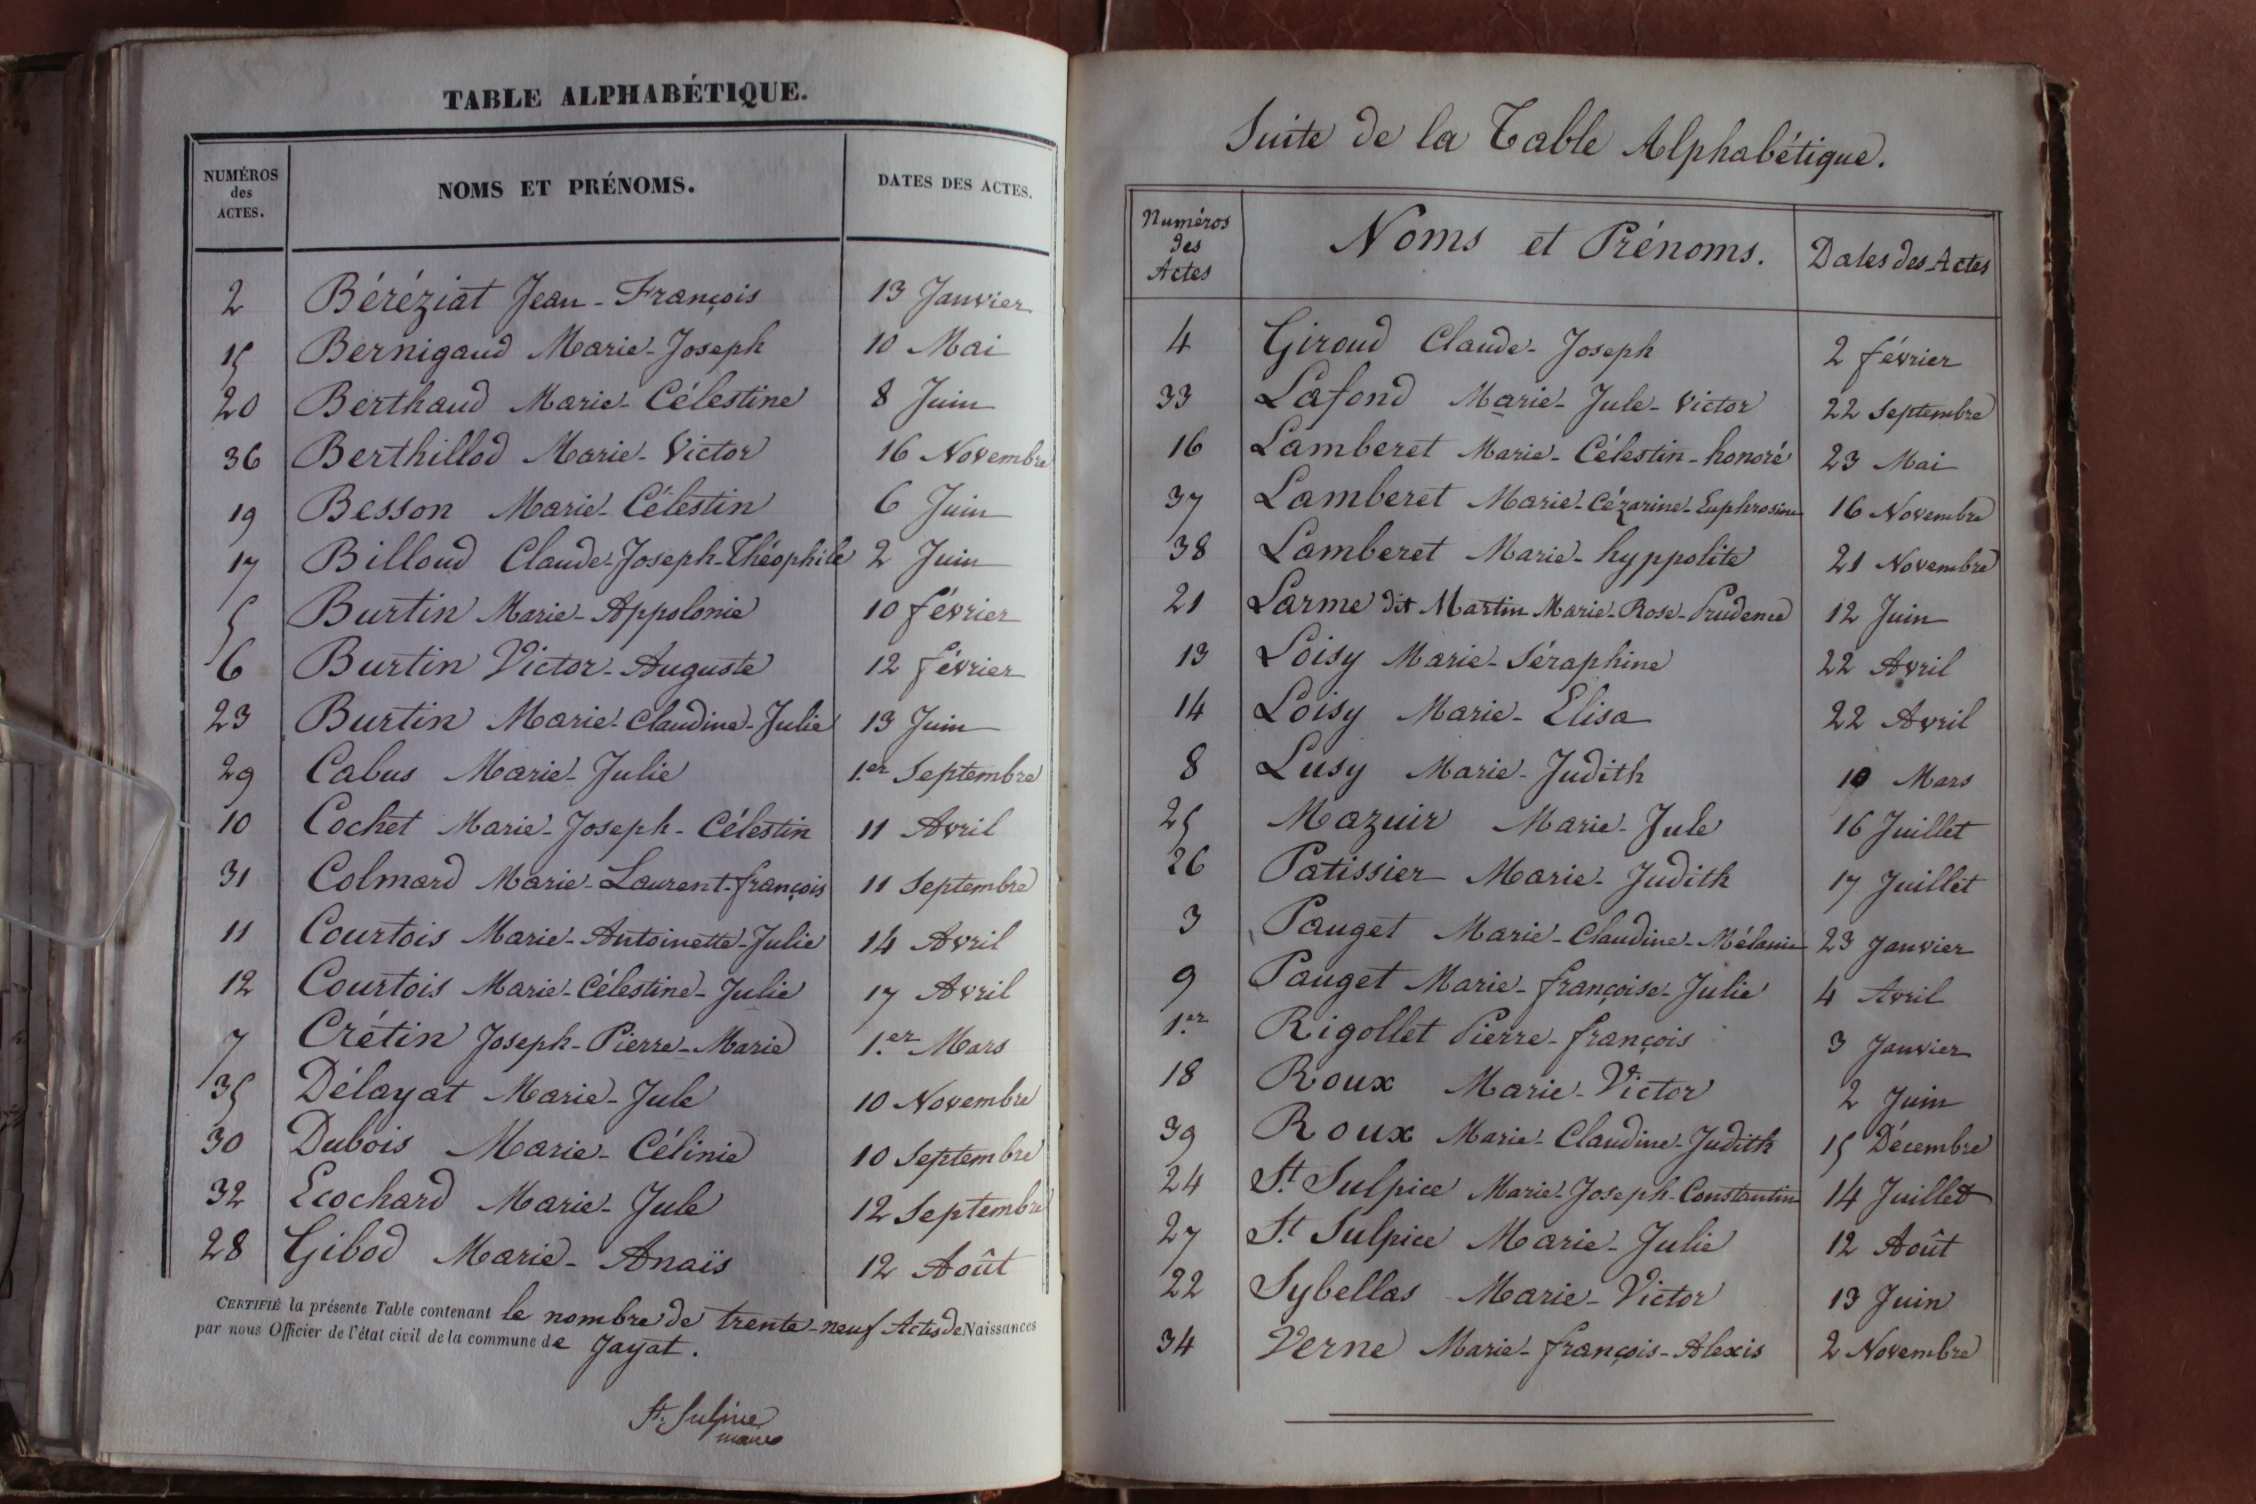 TABLE ALPHABÉTIQUE.
NUMÉROS des ACTES. NOMS ET PRÉNOMS. DATES DES ACTES.
2 Béréziat Jean-François 13 Janvier
15 Bernigaud Marie-Joseph 10 Mai
20 Berthaud Marie-Célestine 8 Juin
36 Berthillod Marie-Victor 16 Novembre
19 Besson Marie-Célestin 6 Juin
17 Billoud Claude-Joseph-Théophile 2 Juin
5 Burtin Marie-Appolonie 10 février
6 Burtin Victor-Auguste 12 février
23 Burtin Marie-Claudine-Julie 13 Juin
29 Cabus Marie-Julie 1.er Septembre
10 Cochet Marie-Joseph-Célestin 11 Avril
31 Colmard Marie-Laurent-françois 11 Septembre
11 Courtois Marie-Antoinette-Julie 14 Avril
12 Courtois Marie-Célestine-Julie 17 Avril
7 Crétin Joseph-Pierre-Marie 1.er Mars
35 Délayat Marie-Jule 10 Novembre
30 Dubois Marie-Célinie 10 Septembre
32 Ecochard Marie-Jule 12 Septembre
28 Gibod Marie-Anaïs 12 Août
CERTIFIÉ la présente Table contenant le nombre de trente-neuf Actes de Naissances
par nous Officier de l'état civil de la commune de Jayat.
St. Sulpice
maire
Suite de la Table Alphabétique.
Numéros des Actes Noms et Prénoms. Dates des Actes
4 Giroud Claude-Joseph 2 février
33 Lafond Marie-Jule-Victor 22 Septembre
16 Lamberet Marie-Célestin-honoré 23 Mai
37 Lamberet Marie-Cézarine-Euphrosine 16 Novembre
38 Lamberet Marie-hyppolite 21 Novembre
21 Larme dit Martin Marie-Rose-Prudence 12 Juin
13 Loisy Marie-Séraphine 22 Avril
14 Loisy Marie-Elisa 22 Avril
8 Lusy Marie-Judith 10 Mars
25 Mazuir Marie-Jule 16 Juillet
26 Patissier Marie-Judith 17 Juillet
3 Pauget Marie-Claudine-Mélanie 23 Janvier
9 Pauget Marie-françoise-Julie 4 Avril
1.er Rigollet Pierre-françois 3 Janvier
18 Roux Marie-Victor 2 Juin
39 Roux Marie-Claudine-Judith 15 Décembre
24 St. Sulpice Marie-Joseph-Constantin 14 Juillet
27 St. Sulpice Marie-Julie 12 Août
22 Sybellas Marie-Victor 13 Juin
34 Verne Marie-françois-Alexis 2 Novembre